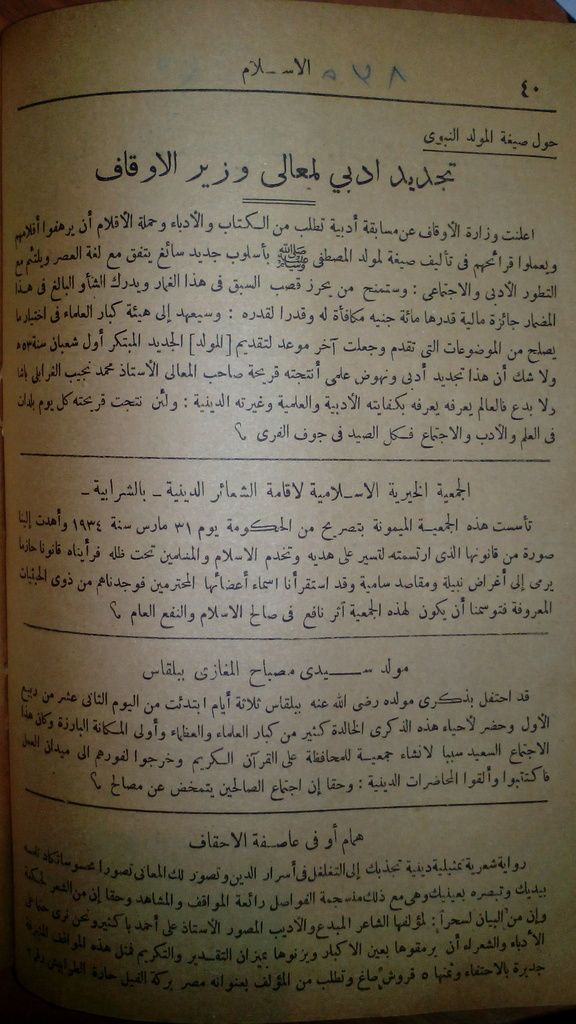 الاسـلام
٤٠
حول صيغة المولد النبوى
تجديد ادبي لمعالى وزير الاوقاف
اعلنت وزارة الأوقاف عن مسابقة أدبية تطلب من الكتاب والأدباء وحملة الأقلام أن يرهفوا أقلامهم
ويعملوا قرائحهم فى تأليف صيغة لمولد المصطفى ﷺ بأسلوب جديد سائغ يتفق مع لغة العصر ويلتئم مع
التطور الأدبى والاجتماعى : وستمنح من يحرز قصب السبق فى هذا الغمار ويدرك الشأو البالغ فى هذا
المضمار جائزة مالية قدرها مائة جنيه مكافأة له وقدرا لقدره : وسيعهد إلى هيئة كبار العلماء فى اختيار ما
يصلح من الموضوعات التى تقدم وجعلت آخر موعد لتقديم [المولد] الجديد المبتكر أول شعبان سنة ٥٣ ه
ولا شك أن هذا تجديد أدبى ونهوض علمى أنتجته قريحة صاحب المعالى الأستاذ محمد نجيب الغرابلى باشا
ولا بدع فالعالم يعرفه يعرفه بكفايته الأدبية والعلمية وغيرته الدينية : ولئن نتجت قريحته كل يوم بلدات
فى العلم والأدب والاجتماع فكل الصيد فى جوف الفرى
الجمعية الخيرية الاسـلامية لاقامة الشعائر الدينية ـ بالشرابية ـ
تأسست هذه الجمعية الميمونة بتصريح من الحكومة يوم ٣١ مارس سنة ١٩٣٤ وأهدت إلينا
صورة من قانونها الذى ارتسمته لتسير على هديه وتخدم الاسلام والمسلمين تحت ظله فرأيناه قانونا حازما
يرمى إلى أغراض نبيلة ومقاصد سامية وقد استقرأنا اسماء أعضائها المحترمين فوجدناهم من ذوى الحيثيات
المعروفة فتوسمنا أن يكون لهذه الجمعية أثر نافع فى صالح الاسلام والنفع العام
مولد سـيدى مصباح المغازى ببلقاس
قد احتفل بذكرى مولده رضى الله عنه ببلقاس ثلاثة أيام ابتدئت من اليوم الثانى عشر من ربيع
الأول وحضر لأحياء هذه الذكرى الخالدة كثير من كبار العلماء والعظماء وأولى المكانة البارزة وكان هذا
الاجتماع السعيد سببا لانشاء جمعية للمحافظة على القرآن الكريم وخرجوا لفورهم الى ميدان العمل
فاكتتبوا وألقوا المحاضرات الدينية : وحقا إن اجتماع الصالحين يتمخض عن مصالح
همام أو فى عاصـفة الاحقاف
رواية شعرية تمثيلية دينية تجذبك إلى التغلغل فى أسرار الدين وتصور لك المعانى تصورا محسوسا تكاد تلمسه
بيديك وتبصره بعينيك وهى مع ذلك منسجمة الفواصل رائعة المواقف والمشاهد وحقا إن من الشعر لحكمة
وإن من البيان لسحرا : لمؤلفها الشاعر المبدع والأديب المصور الأستاذ على أحمد باكثير ونحن نرى حتما على
الأدباء والشعراء أن يرمقوها بعين الاكبار ويزنوها بميزان التقدير والتكريم فمثل هذه المواقف
جديرة بالاحتفاء وثمنها ٥ قروش صاغ وتطلب من المؤلف بعنوانه مصر بركة الفيل حارة الطرابيشى رقم